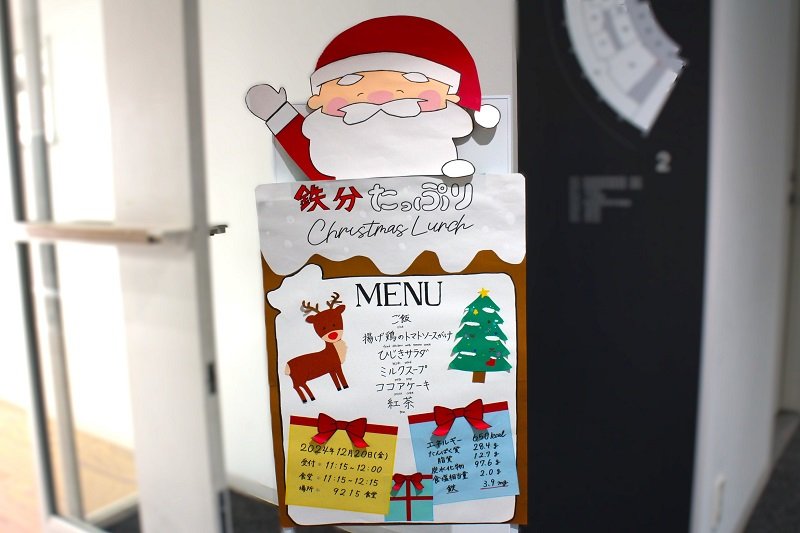 鉄分たっぷり
Christmas Lunch
MENU
ご飯
揚げ鶏のトマトソースがけ
ひじきサラダ
ミルクスープ
ココアケーキ
紅茶
2024年12月20日(金)
受付：11:15~12:00
食堂：11:15~12:15
場所： 9215食堂
エネルギー 650kcal
たんぱく質 28.4g
脂質 12.7g
炭水化物 97.6g
食塩相当量 2.0g
鉄 3.9mg
2